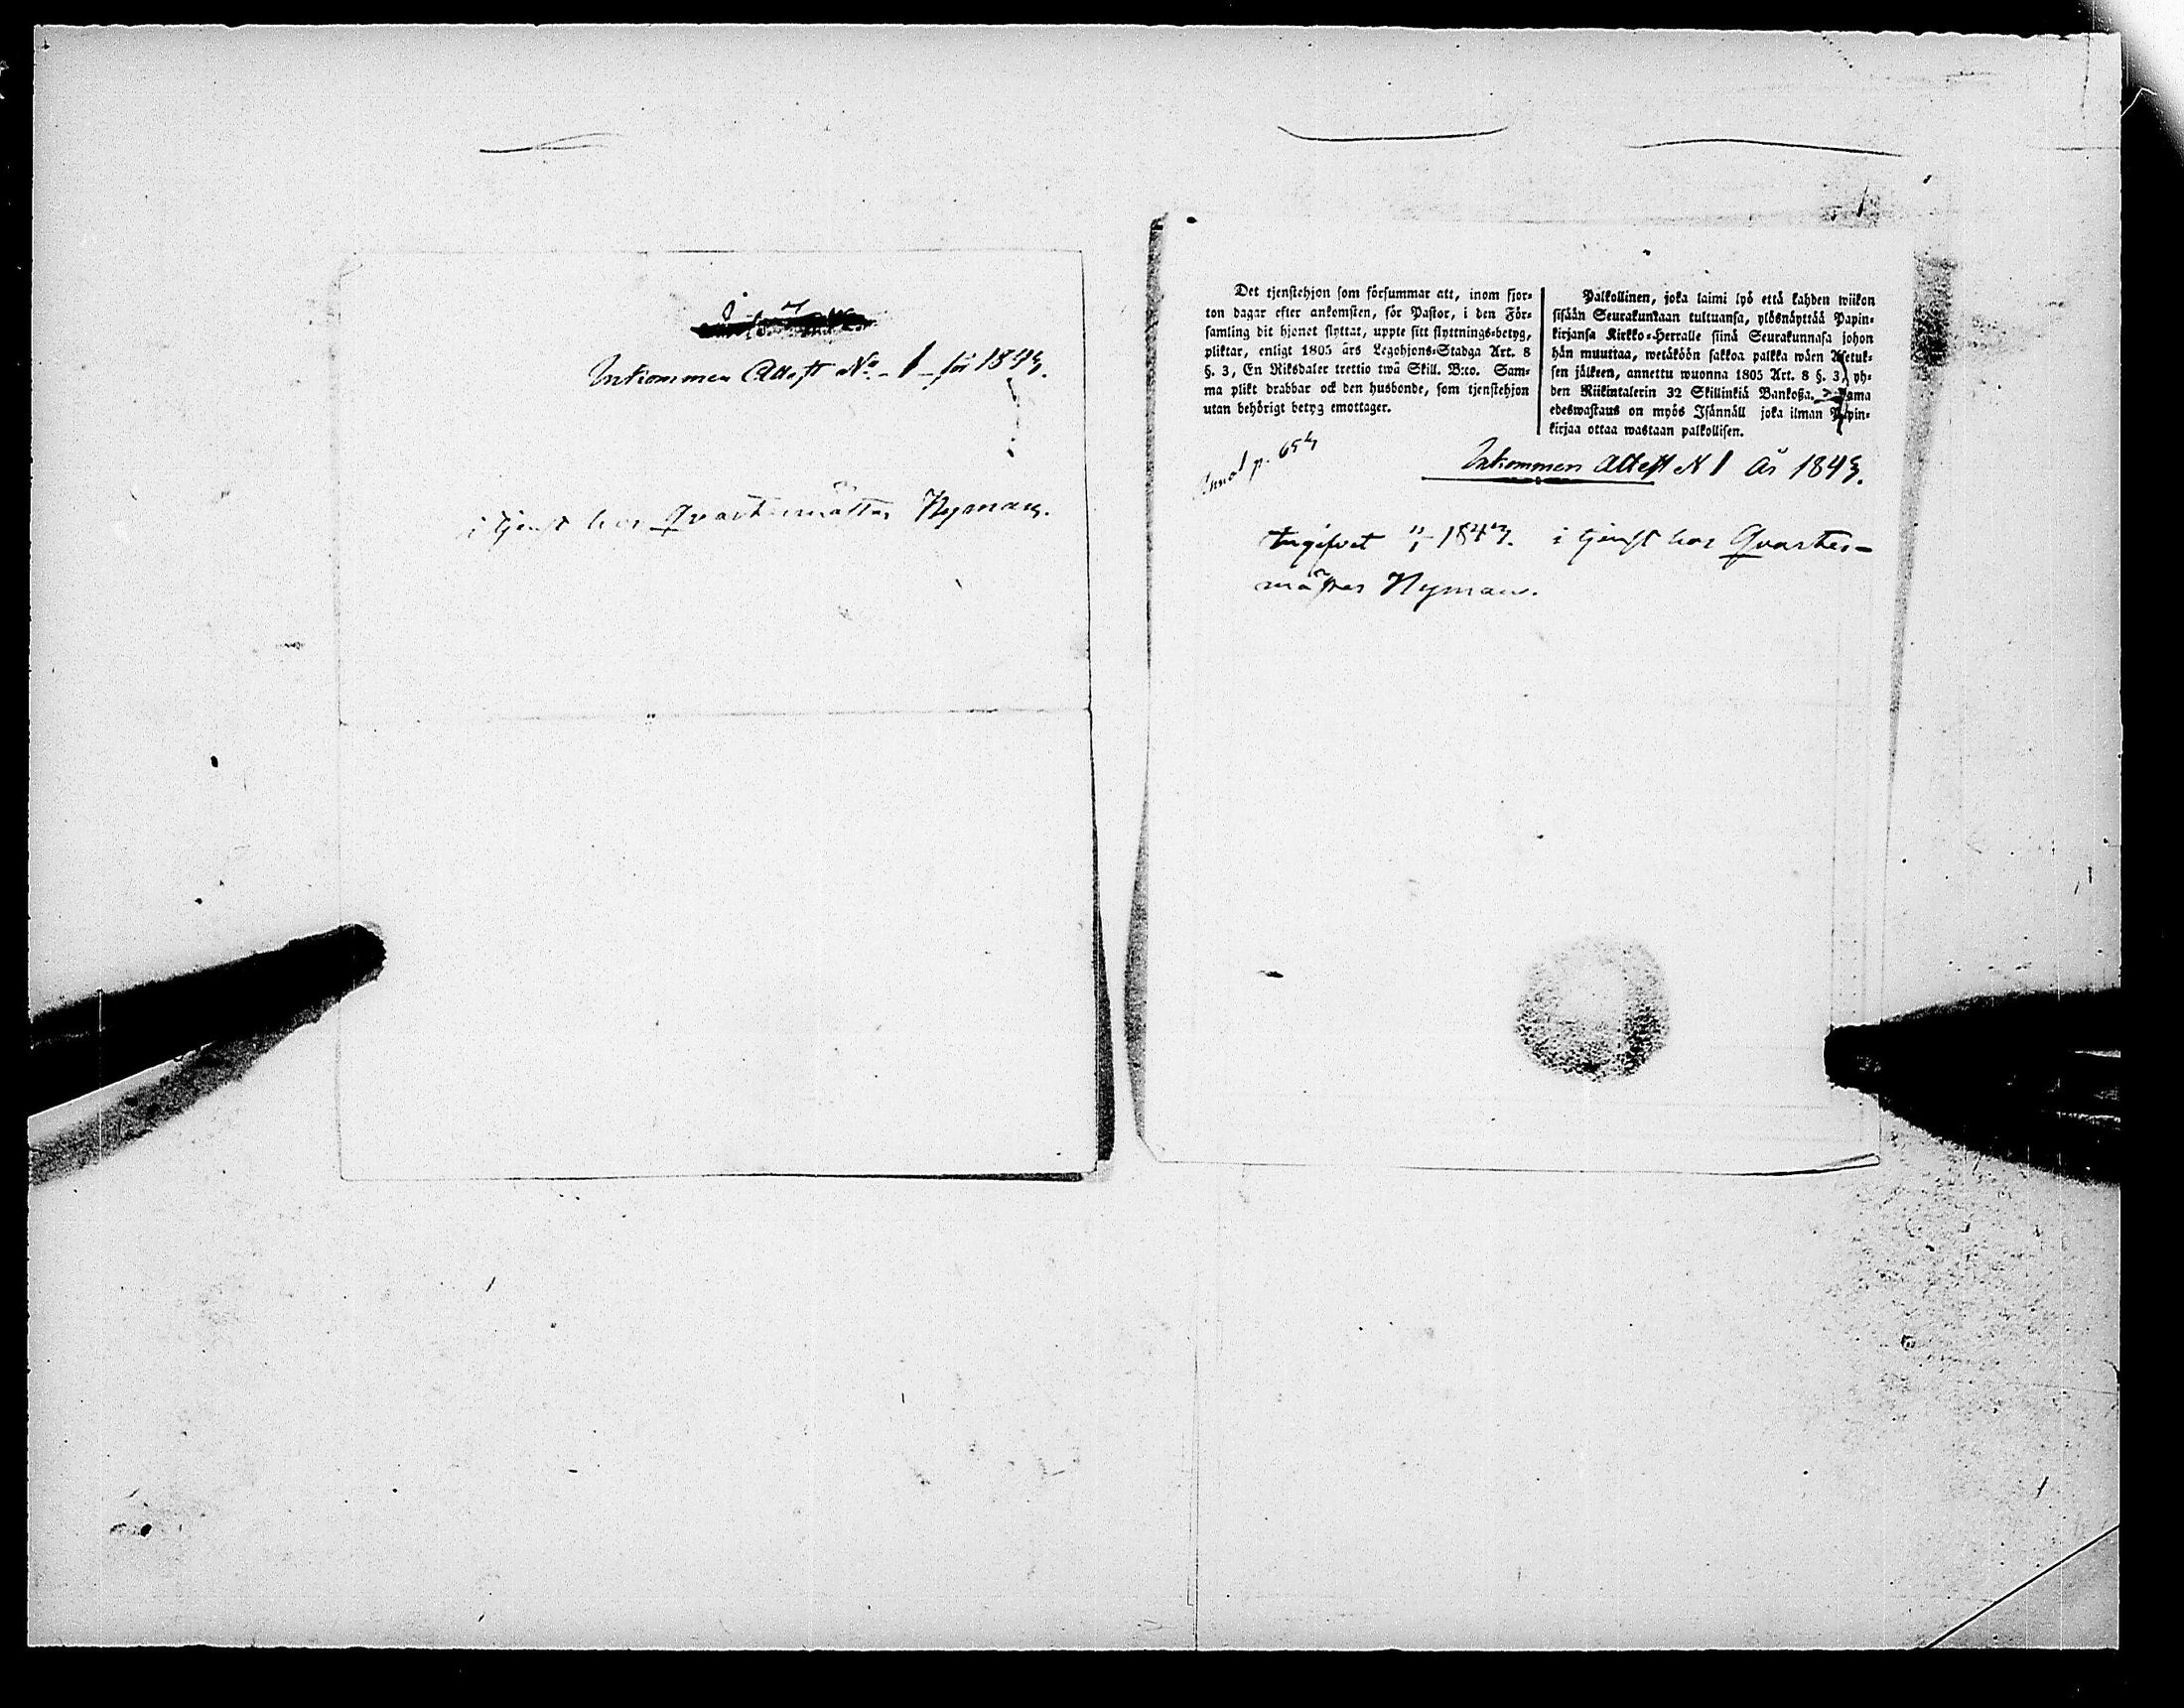 Inkommen Attest No 1 för 1843.
i tjenst hos Qvartermästar Nyman.
Det tjenstehjon som försummar att, inom fjor-
ton dagar efter ankomsten, för Pastor, i den För-
samling dit hjonet flyttat, uppte sitt flyttnings-betyg,
pliktar, enligt 1805 års Legohjons-Stadga Art. 8
§. 3, En Riksdaler trettio twå Skill. B:co. Sam-
ma plikt drabbar ock den husbonde, som tjenstehjon
utan behörigt betyg emottager.
Palkollinen, joka laimi lyö että kahden wiikon
sisään Seurakuntaan tultuansa, ylösnäyttää Papin-
kirjansa Kirkko-Herralle siinä Seurakunnasa johon
hän muuttaa, wetäköön sakkoa palkka wäen Asetuk-
sen jälkeen, annettu wuonna 1805 Art. 8 §. 3, yh-
den Riikintalerin 32 Skillinkiä Bankoßa. Sama
edeswastaus on myös Isännäll joka ilman Papin-
kirjaa ottaa wastaan palkollisen.
p. 654
Inkommen Attest N 1 år 1843.
Angifvet 11/1 1843. i tjenst hos Qvarter-
mästar Nyman.